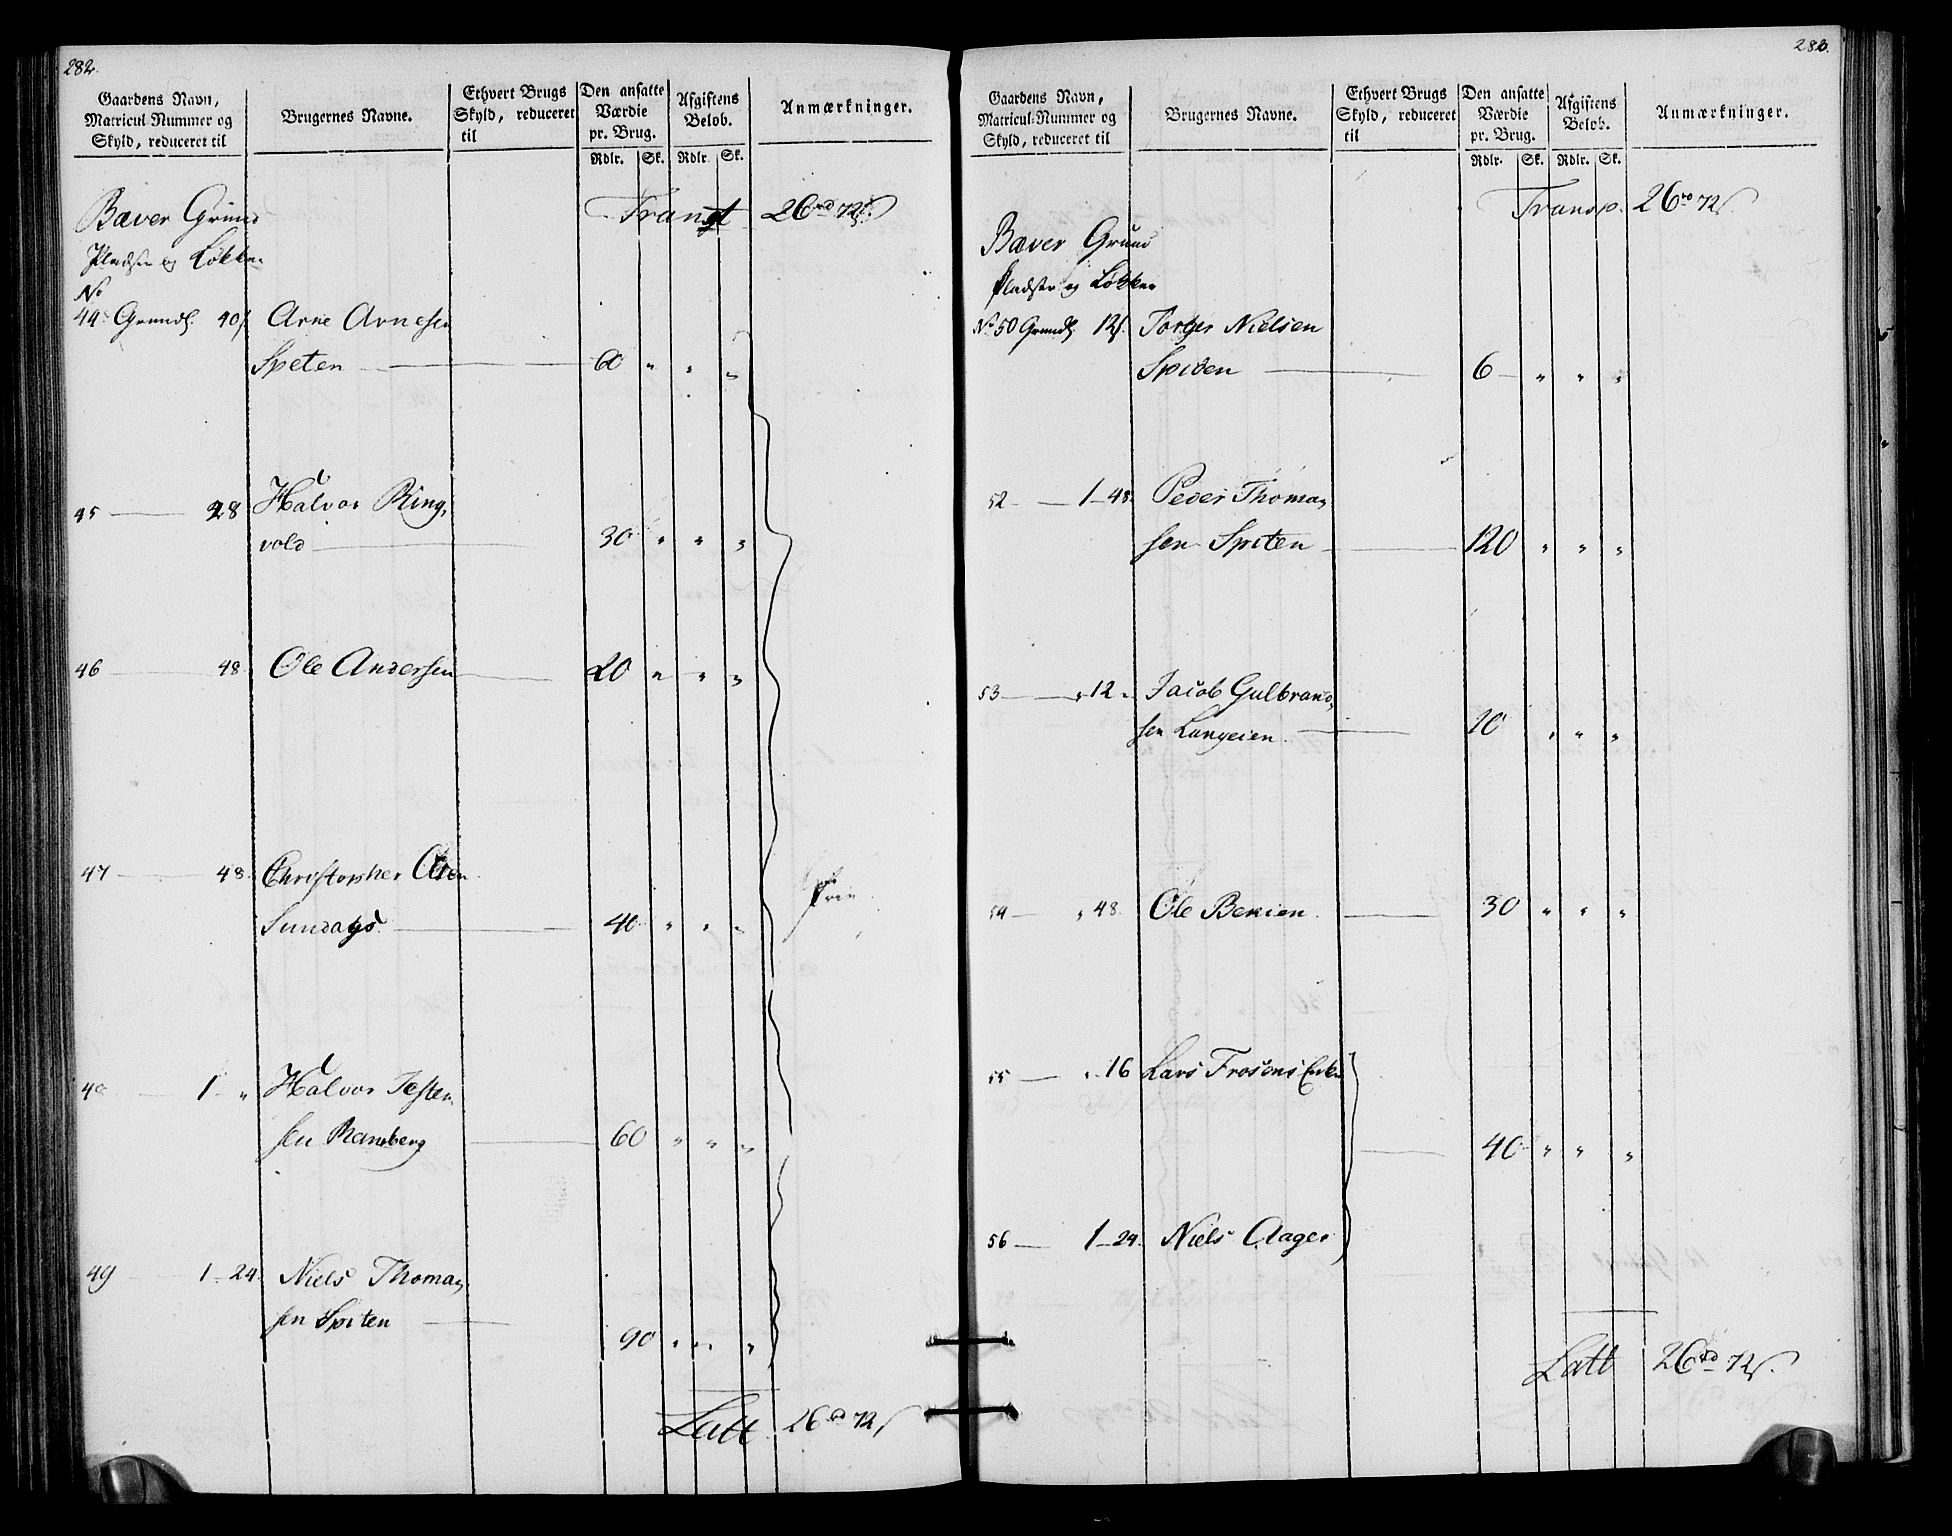 282.
Gaardens Navn, Matricul Nummer og Skyld, reduceret til
Brugernes Navne.
Ethvert Brugs Skyld, reduceret til
Den ansatte Værdie pr. Brug.
Afgiftens Beløb.
Anmærkninger.
Rdlr. Sk. Rdlr. Sk.
Transpt 26 rd 72 s.
Bæver Grund
Pladser og Løkker
No
44 Grundl. 40 s. Arne Arnesen
Speten 60 " " "
45 28 Halvor Ring,
vold 30 " " "
46 48 Ole Andersen 20 " " "
47 48 Christopher Olsen
Sundbye 40 " " "
Frie
48 1 " Halvor Josten,
sen Ramberg 60 " " "
49 1 - 24 Niels Thoma,
sen Spiten 90 " " "
Latt 26 rd 72 s
283.
Gaardens Navn, Matricul-Nummer og Skyld, reduceret til
Brugernes Navne.
Ethvert Brugs Skyld, reduceret til
Den ansatte Værdie pr. Brug.
Afgiftens Beløb.
Anmærkninger.
Rdlr. Sk. Rdlr. Sk.
Transp. 26 rd 72 s.
Bæver Grund
Pladser og Løkker
No. 50 Grundl. 12 s. Torger Nielsen
Spiten 6 " " "
52 1 - 48. Peder Thoma,
sen Spiten 120 " " "
53 " 12 " Jacob Gulbrand,
sen Langeien 20 " " "
54 " 48. Ole Berien 30 " " "
55 " 16 Lars Frosens Enke
40 " " "
56 1 - 24. Niels Aager
Latt 26 rd 72 s.